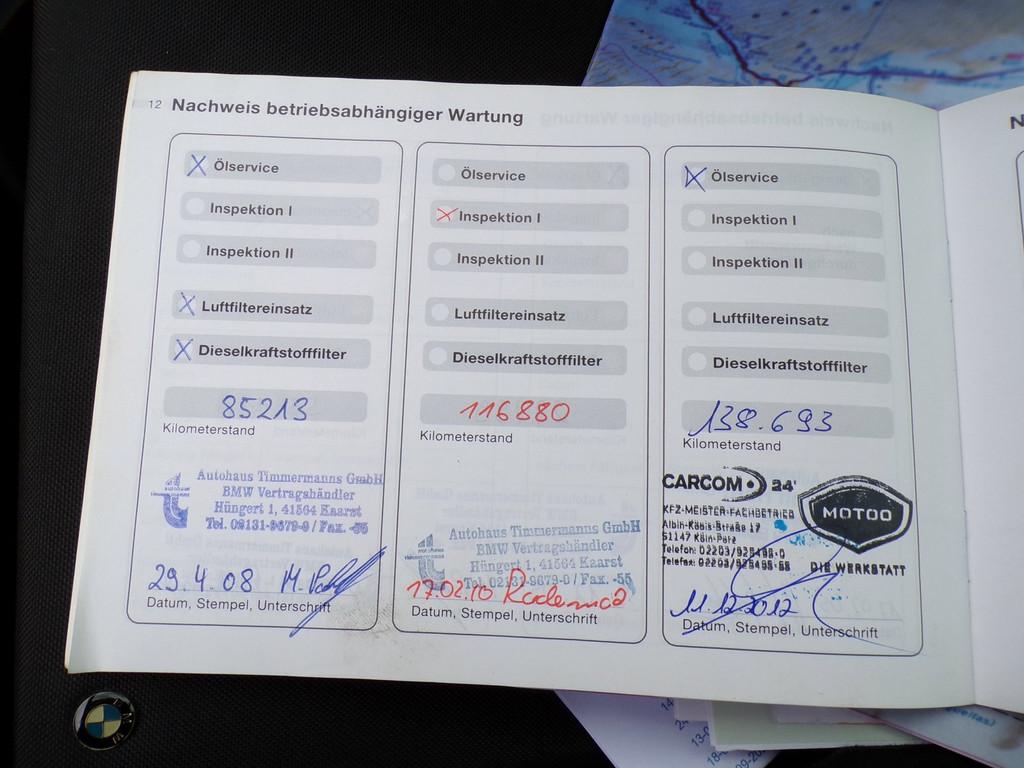 12 Nachweis betriebsabhängiger Wartung
X Ölservice
Inspektion I
Inspektion II
X Luftfiltereinsatz
X Dieselkraftstofffilter
85213
Kilometerstand
Autohaus Timmermanns GmbH
BMW Vertragshändler
Hüngert 1, 41564 Kaarst
Tel. 02131-9679-0 / Fax. -55
29.4.08
Datum, Stempel, Unterschrift
Ölservice
X Inspektion I
Inspektion II
Luftfiltereinsatz
Dieselkraftstofffilter
116880
Kilometerstand
Autohaus Timmermanns GmbH
BMW Vertragshändler
Hüngert 1, 41564 Kaarst
Tel. 02131-9679-0 / Fax. -55
17.02.10
Datum, Stempel, Unterschrift
X Ölservice
Inspektion I
Inspektion II
Luftfiltereinsatz
Dieselkraftstofffilter
138.693
Kilometerstand
CARCOM 24
MOTOO
KFZ-MEISTER-FACHBETRIEB
51147 Köln-Porz
Telefon: 02203/925498-0
Telefax: 02203/925498-58
DIE WERKSTATT
11.12.2012
Datum, Stempel, Unterschrift
N
BMW